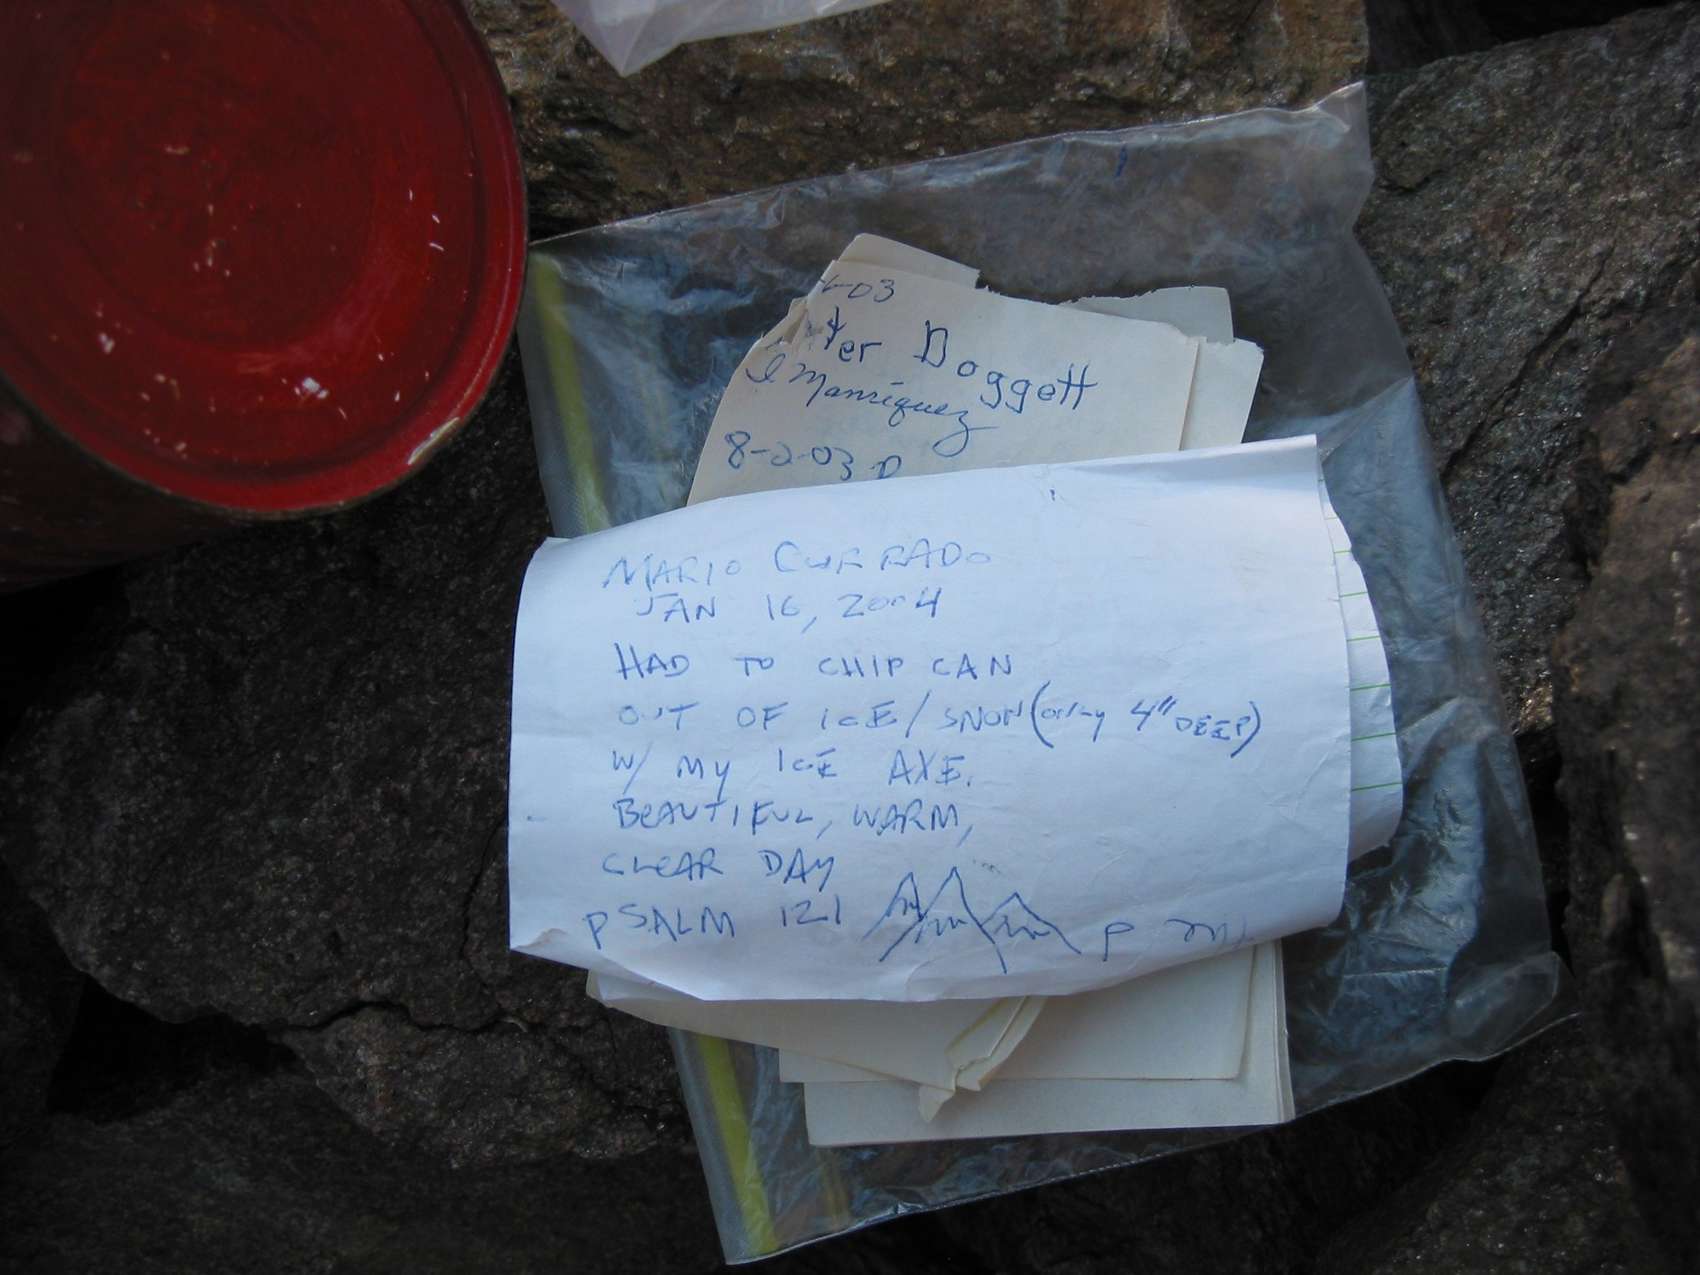 6-03
Doggett
Manriquez
8-2-03
MARIO CURRADO
JAN 16, 2004
HAD TO CHIP CAN
OUT OF ICE/SNOW (ONLY 4" DEEP)
W/ MY ICE AXE.
BEAUTIFUL, WARM,
CLEAR DAY
PSALM 121